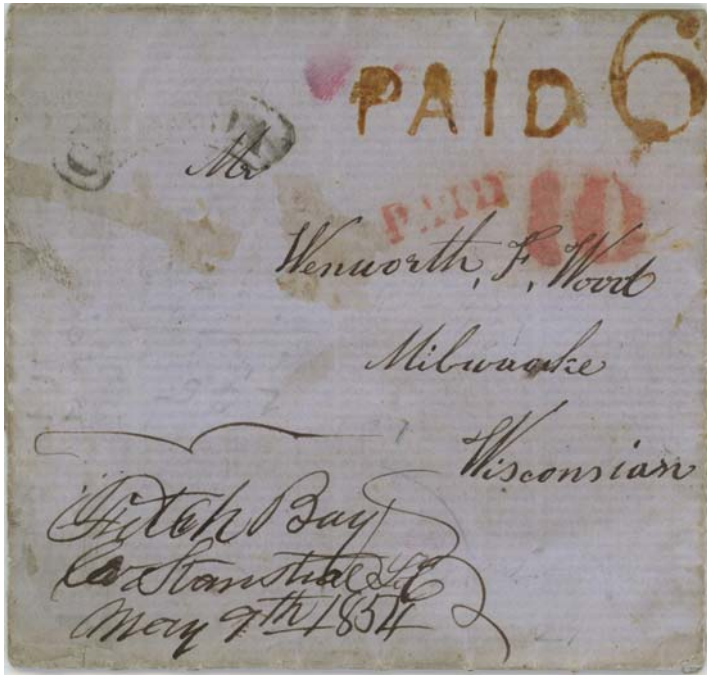 PAID 6
Mr
PAID 10
Wenworth, F, Wood
Milwaake
Wisconsian
Fitch Bay
Co Stanstead L.C
May 9th 1854